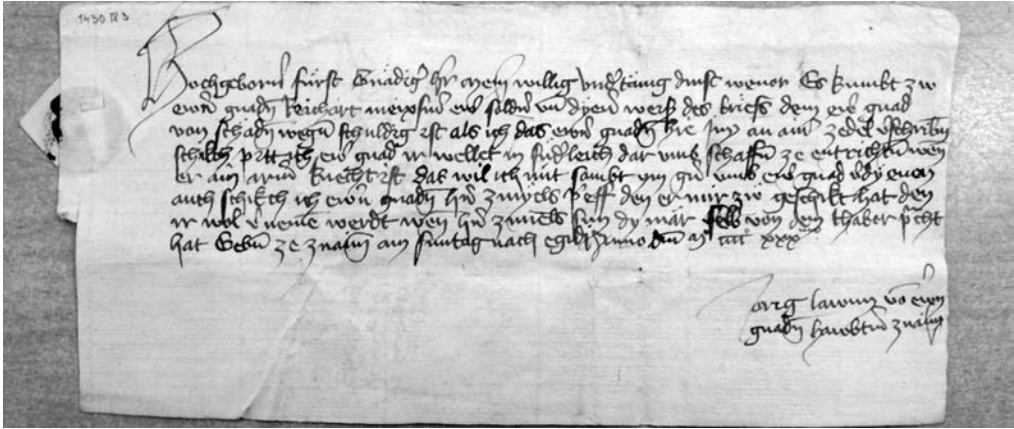 1430 IX 3
Hochgeborner fürst Gnädiger her Meyn willig undertänig dinst wevor Es kumbt zw
ewrn gnadn Reichart meixsner ewr soldner vnd dyener weiser des briefs dem ewr gnad
von schadn wegn schuldig ist als ich das ewrn gnadn hie Inn an ainer zedel
schikch pitt ich ewr gnad ir wellet in dar umb schaffn ze entrichtn wen
er ain armer knecht ist das wil ich mit sambt ym gern umb ewr gnad
auch schikch ich ewrn gnadn hern brieff den er mir zw geschikt hat den
ir wol vernemen werdt wen her sun dy mär selb von dem thaber
hat Gebn ze znaim am suntag nach egidi Anno dm xxx
Jorg von ewrn
gnadn hawbtman znaim